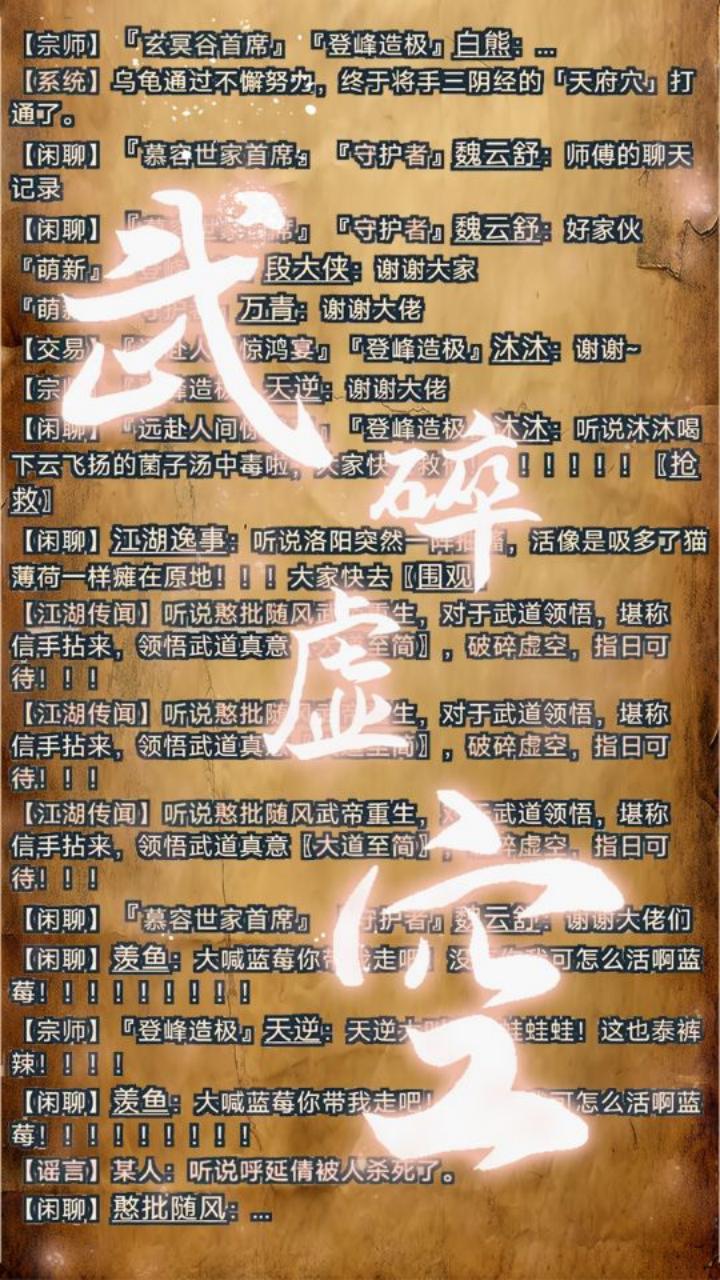 【宗师】『玄冥谷首席』『登峰造极』白熊：...
【系统】乌龟通过不懈努力，终于将手三阴经的「天府穴」打
通了。
【闲聊】『慕容世家首席』『守护者』魏云舒：师傅的聊天
记录
【闲聊】『慕容世家首席』『守护者』魏云舒：好家伙
『萌新』 段大侠：谢谢大家
『萌新 万青：谢谢大佬
【交易】 赴人 惊鸿宴』『登峰造极』沐沐：谢谢~
【宗 峰造极 天逆：谢谢大佬
【闲聊】『远赴人间惊 』『登峰造极』沐沐：听说沐沐喝
下云飞扬的菌子汤中毒啦，大家快 救 ！！！！！！〖抢
救〗
【闲聊】江湖逸事：听说洛阳突然一阵抽 ，活像是吸多了猫
薄荷一样瘫在原地！！！大家快去〖围观
【江湖传闻】听说憨批随风武帝重生，对于武道领悟，堪称
信手拈来，领悟武道真意〖大道至简〗，破碎虚空，指日可
待！！！
【江湖传闻】听说憨批随风武帝重生，对于武道领悟，堪称
信手拈来，领悟武道真意〖大道至简〗，破碎虚空，指日可
待！！！
【江湖传闻】听说憨批随风武帝重生，对于武道领悟，堪称
信手拈来，领悟武道真意〖大道至简〗，破碎虚空，指日可
待！！！
【闲聊】『慕容世家首席』『守护者』魏云舒：谢谢大佬们
【闲聊】羡鱼：大喊蓝莓你带我走吧！没有你我可怎么活啊蓝
莓！！！！！！！！！
【宗师】『登峰造极』天逆：天逆大 蛙蛙蛙！这也泰裤
辣！！！！
【闲聊】羡鱼：大喊蓝莓你带我走吧！ 我可怎么活啊蓝
莓！！！！！！！！！
【谣言】某人：听说呼延倩被人杀死了。
【闲聊】憨批随风：...
武
碎
虚
空